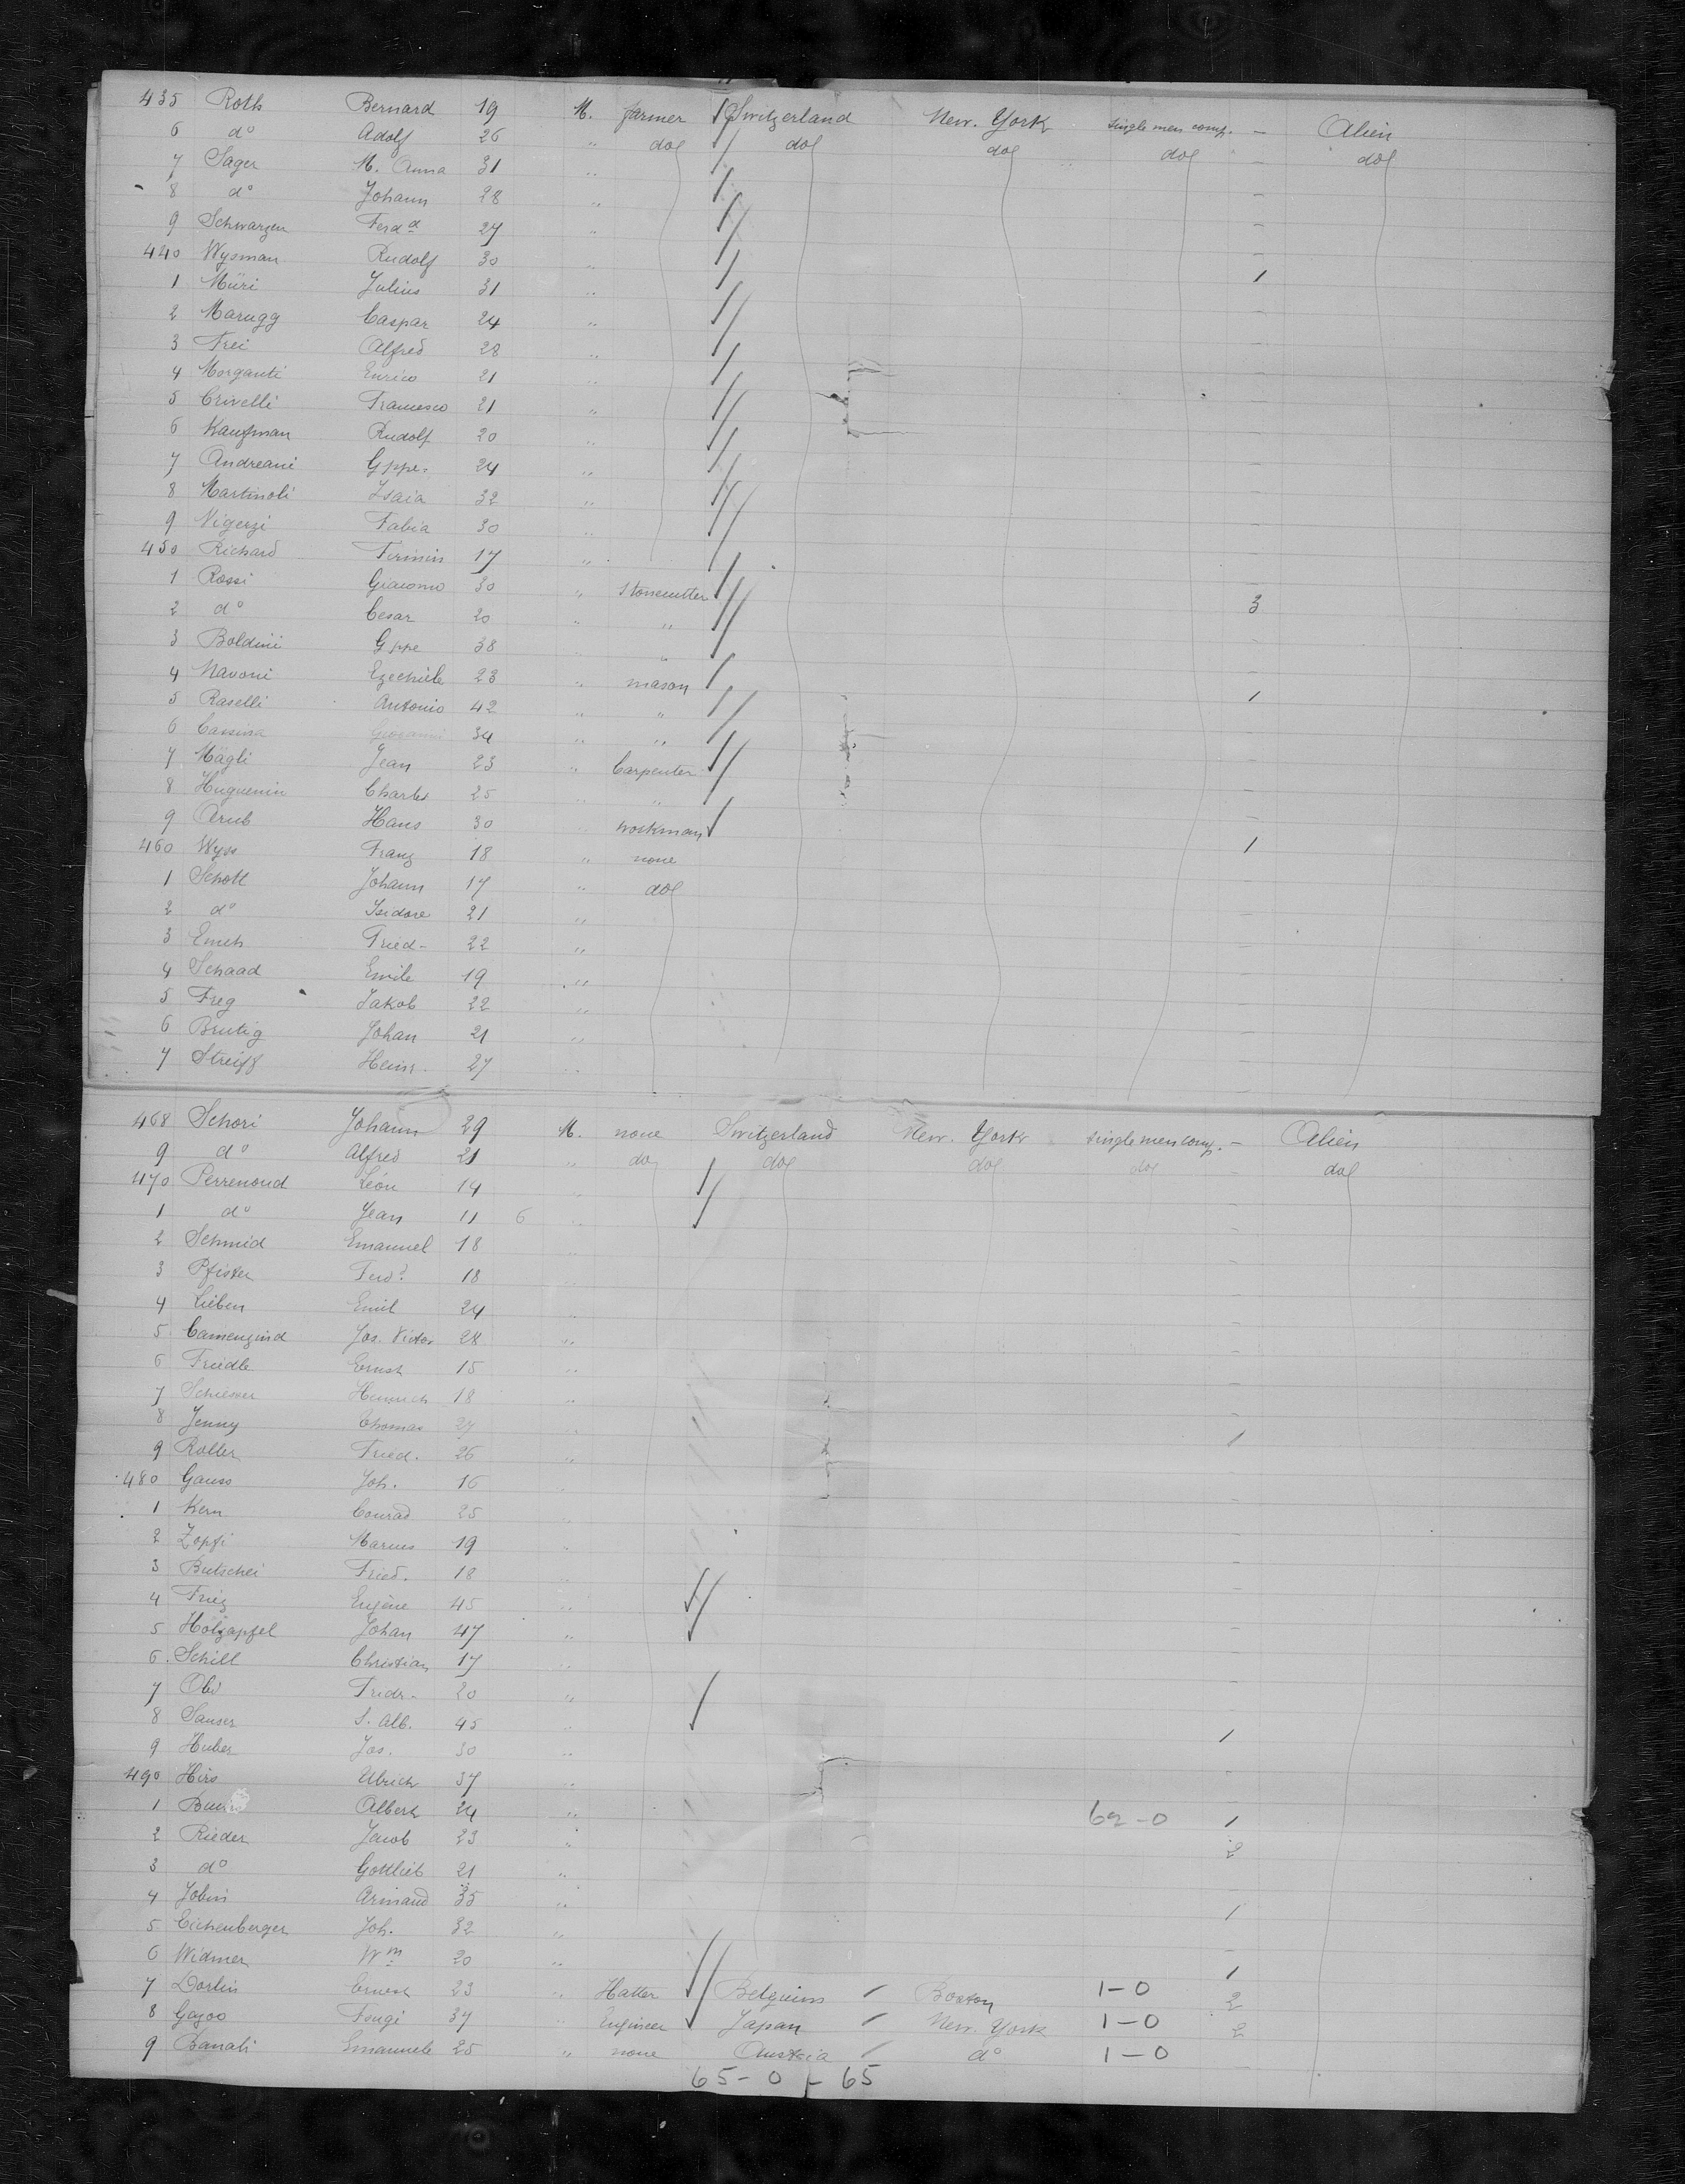 435 Roth Bernard 19 M. farmer Switzerland New. York single men comp. — Alien
6 d° Adolf 26 " do do do do — do
7 Sager M. Anna 31 "
8 d° Johann 28 " —
9 Schwarzen Ferd d 27 " —
440 Wysman Rudolf 30 " —
1 Müri Julius 31 " 1
2 Marugg Caspar 24 " —
3 Frei Alfred 28 " —
4 Morganti Enrico 21 " —
5 Crivelli Francesco 21 " —
6 Kaufman Rudolf 20 " —
7 Andreani Gppe. 24 " —
8 Martinoli Isaia 32 " —
9 Vigerzi Fabia 30 " —
450 Richard Firmin 17 "
1 Rossi Giacomo 30 " Stonecutter —
2 d° Cesar 20 " " 3
3 Boldini Gppe 38 " " —
4 Navoni Ezechiele 23 " mason —
5 Raselli Antonio 42 " " 1
6 Giovanni 34 " " —
7 Mägli Jean 23 " Carpenter —
8 Huguenin Charles 25 " " —
9 Hans 30 " workman —
460 Wyss Franz 18 " none 1
1 Schott Johann 17 " do
2 d° Isidore 21 " —
3 Emch Fried- 22 " —
4 Schaad Emile 19 " —
5 Frey Jakob 22 " —
6 Brutig Johan 21 " —
7 Streiff Heinr. 27 " —
468 Schori Johann 29 M. none Switzerland New. York single men comp. — Alien
9 d° Alfred 21 " do do do do — do
470 Perrenoud Léon 14 "
1 d° Jean 11 6 " —
2 Schmid Emanuel 18 " —
3 Pfister Ferd d 18 " —
4 Lieben Emil 24 " —
5 Camenzind Jos. Victor 28 " —
6 Friedle Ernst 15 " —
7 Schiesser Heinrich 18 " —
8 Jenny Thomas 27 " 1
9 Roller Fried. 26 "
480 Gauss Joh. 16 " —
1 Kern Conrad 25 " —
2 Zopfi Marius 19 " —
3 Butschei Fried. 18 " —
4 Eugène 45 " —
5 Holzapfel Johan 47 " —
6 Schill Christian 17 " —
7 Obi Fridr. 20 " —
8 Sauser S. Alb. 45 " 1
9 Huber Jos. 30 " —
490 Hirs Ulrich 37 " —
1 Albert 24 " 62-0 1
2 Rieder Jacob 23 " 2
3 d° Gottlieb 21 " —
4 Jobin Armand 35 " 1
5 Eichenberger Joh. 32 " —
6 Widmer Wm 20 " 1
7 Dorlin Ernest 23 " Hatter Belgium Boston 1-0 2
8 Gazoo Tsugi 37 " Engineer Japan New. York 1-0 2
9 Banali Emanuele 25 " none Austria d° 1-0 —
65-0-65